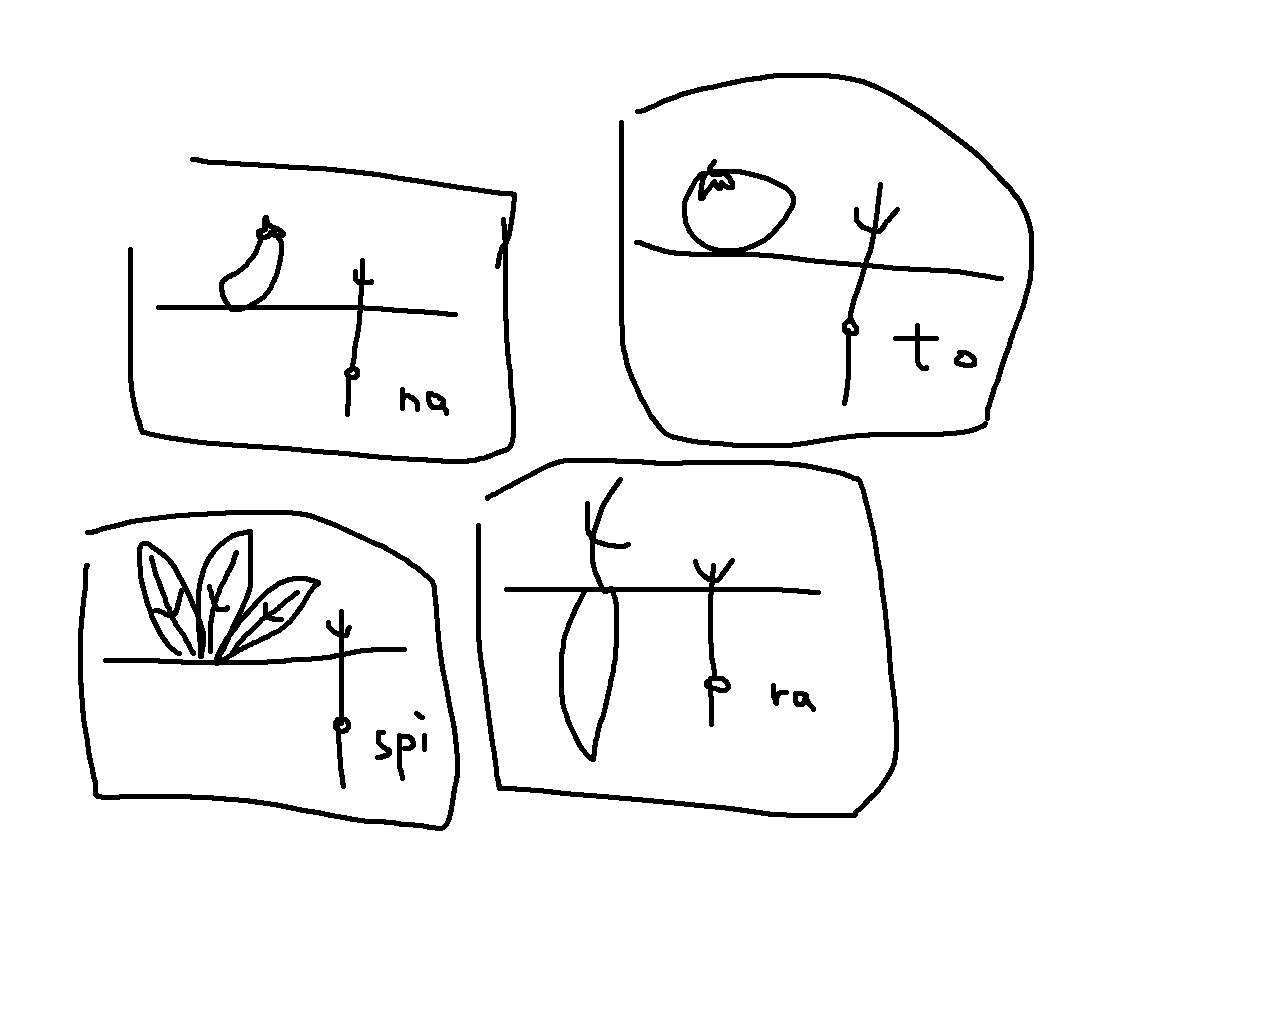 na
to
spi
ra